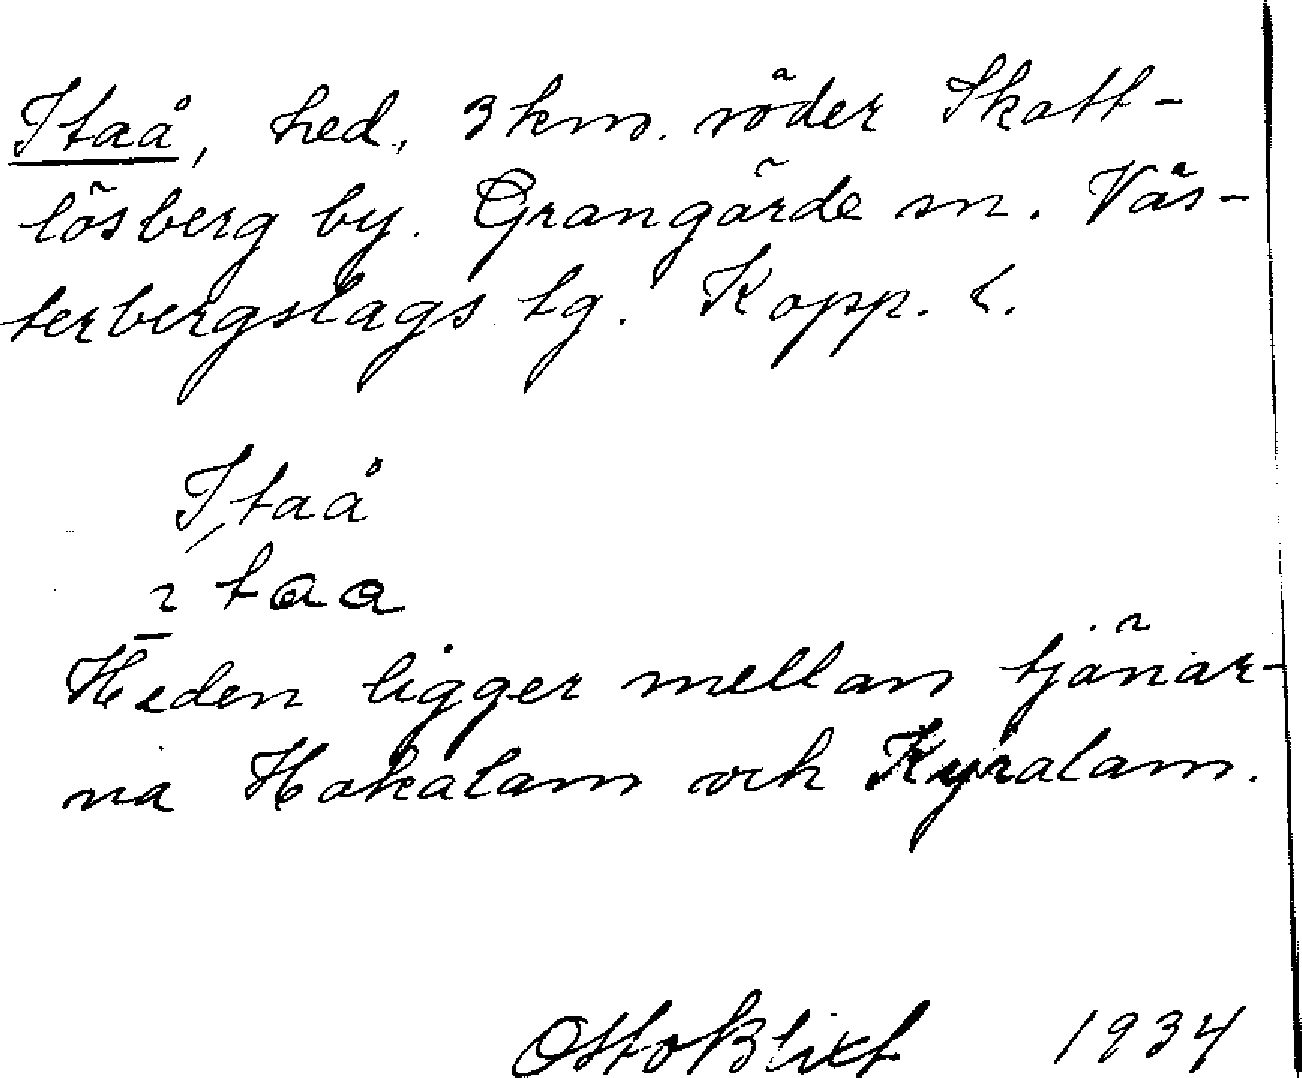 Itaå, hed, 3 km. söder Skatt-
lösberg by. Grangärde sn. Väs-
terbergslags tg. Kopp. l.
Itaå
ı taa
Heden ligger mellan tjänar-
na Hakalam och Kyralam.
Otto Blixt 1934